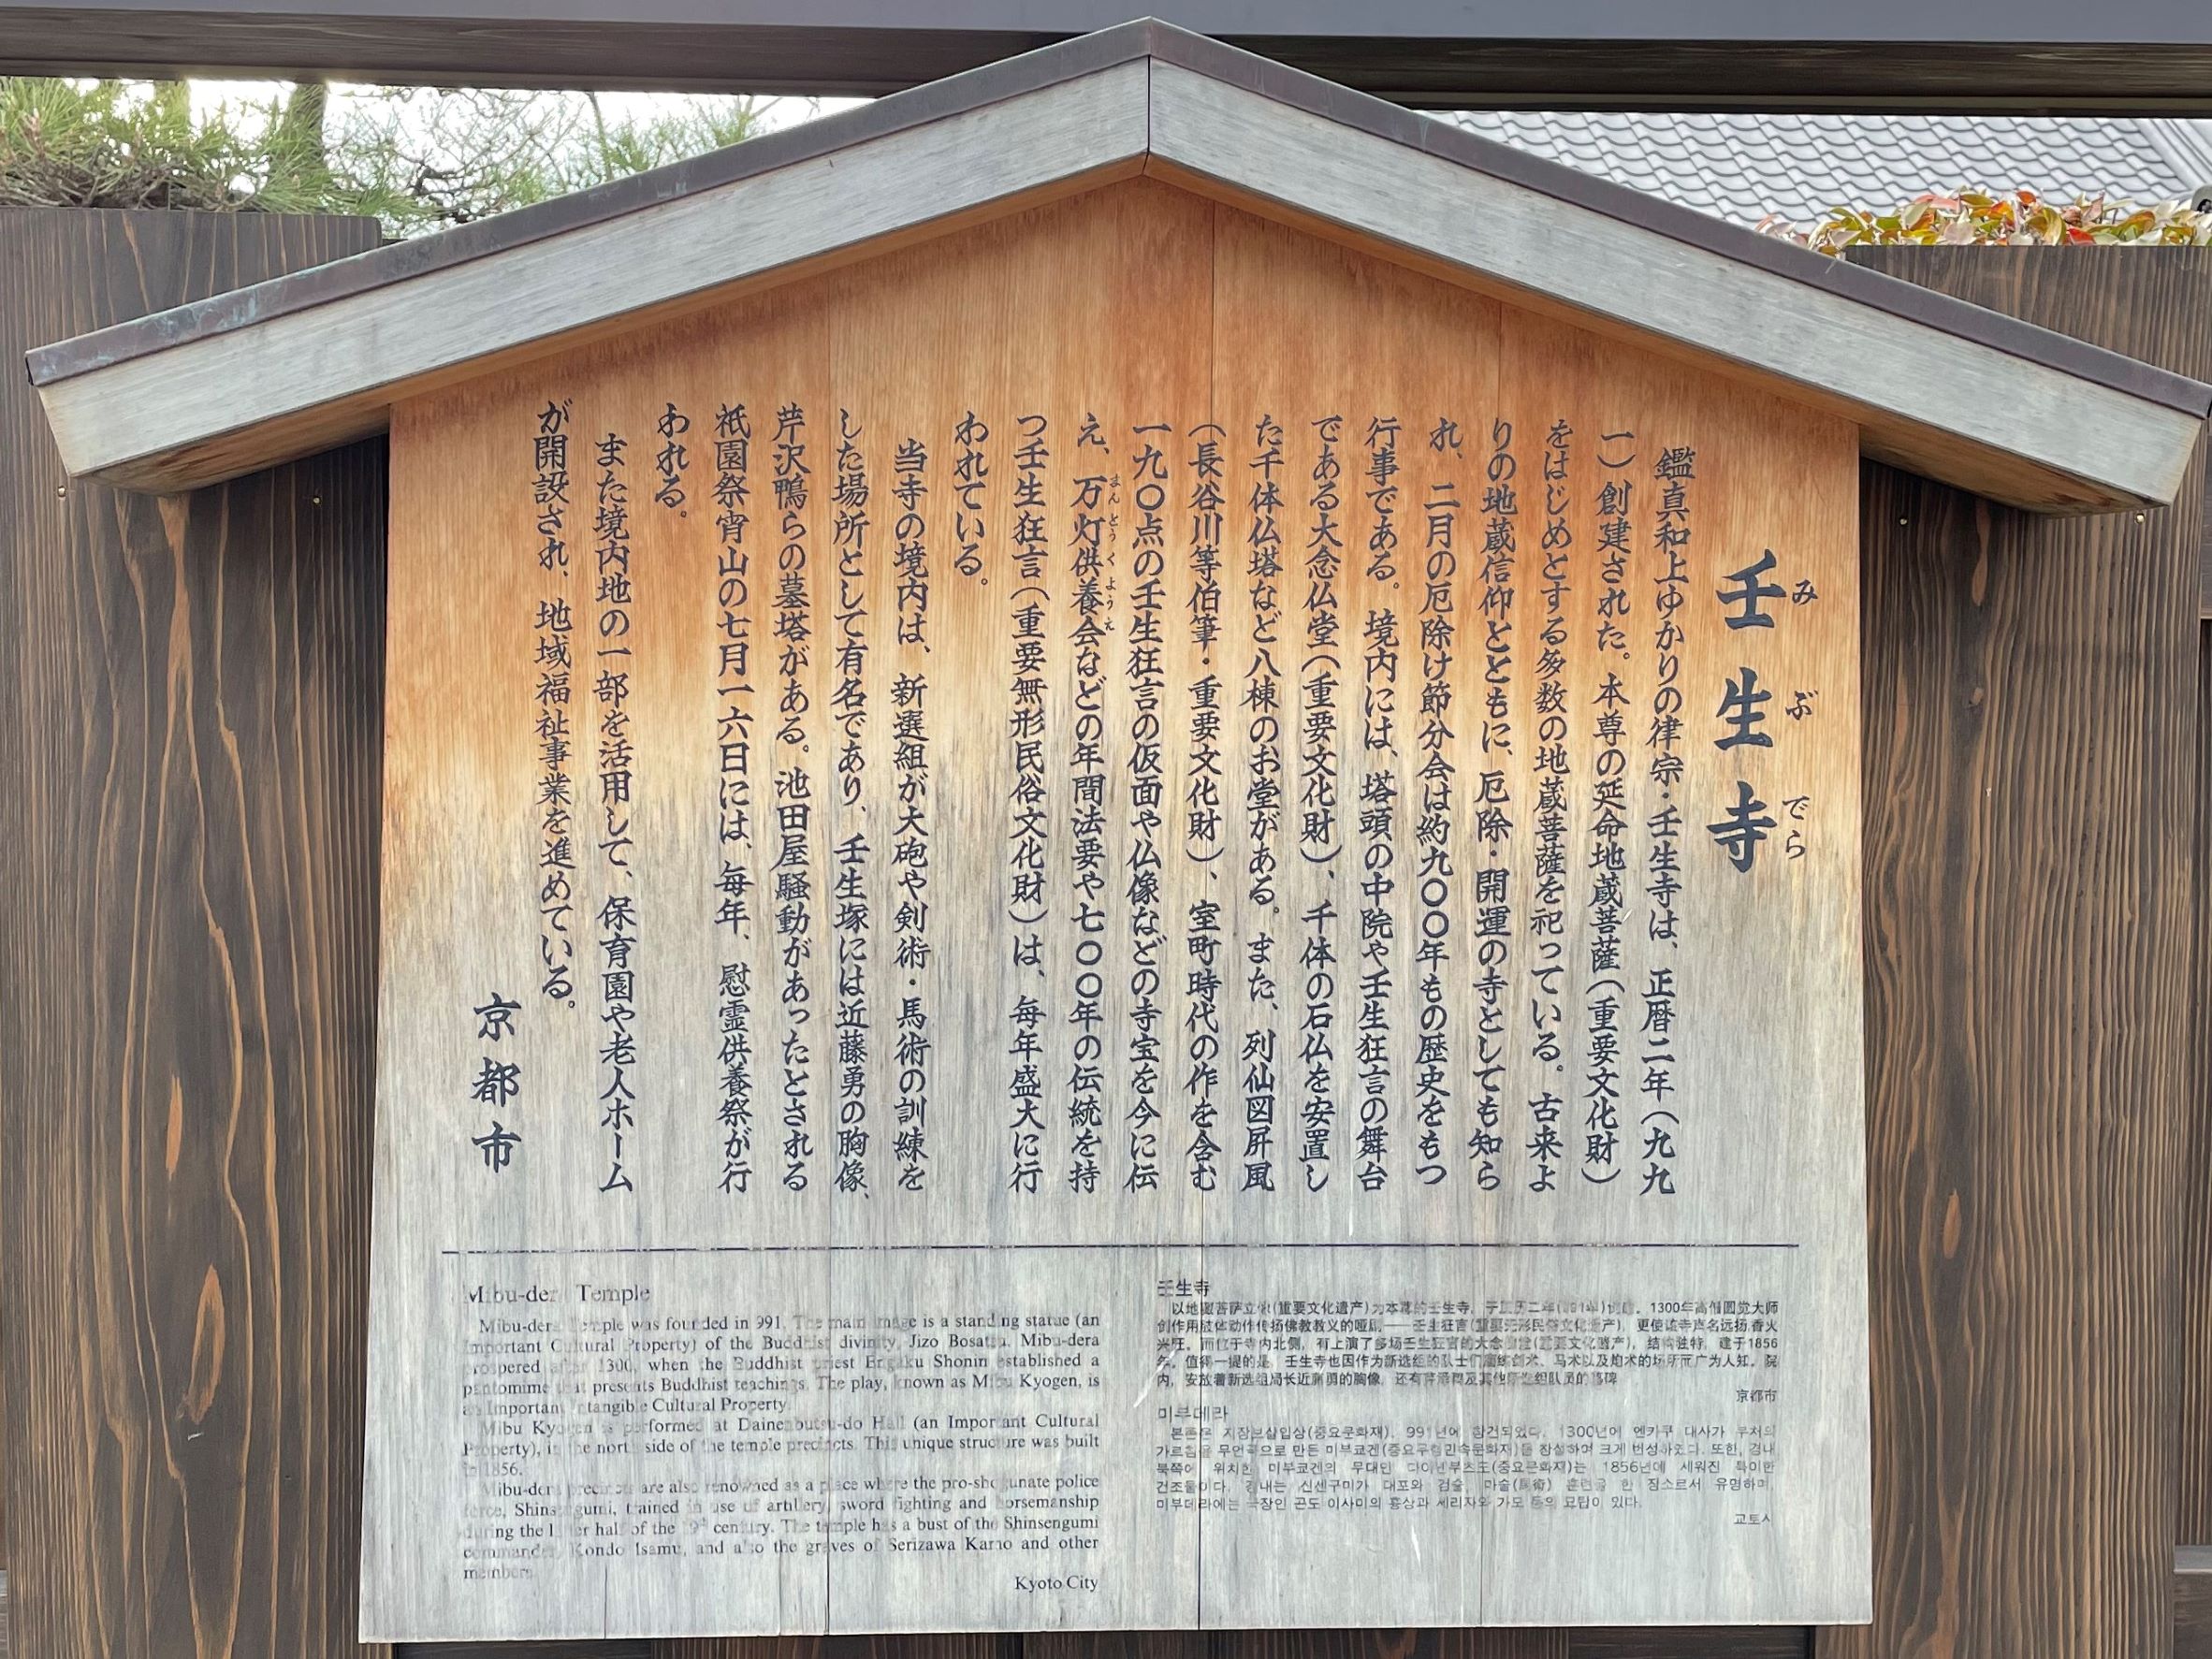 壬生寺
みぶでら
鑑真和上ゆかりの律宗・壬生寺は、正暦二年（九九
一）創建された。本尊の延命地蔵菩薩（重要文化財）
をはじめとする多数の地蔵菩薩を祀っている。古来よ
りの地蔵信仰とともに、厄除・開運の寺としても知ら
れ、二月の厄除け節分会は約九〇〇年もの歴史をもつ
行事である。境内には、塔頭の中院や壬生狂言の舞台
である大念仏堂（重要文化財）、千体の石仏を安置し
た千体仏塔など八棟のお堂がある。また、列仙図屏風
（長谷川等伯筆・重要文化財）、室町時代の作を含む
一九〇点の壬生狂言の仮面や仏像などの寺宝を今に伝
え、万灯供養会などの年間法要や七〇〇年の伝統を持
まんとうくようえ
つ壬生狂言（重要無形民俗文化財）は、毎年盛大に行
われている。
当寺の境内は、新選組が大砲や剣術・馬術の訓練を
した場所として有名であり、壬生塚には近藤勇の胸像、
芹沢鴨らの墓塔がある。池田屋騒動があったとされる
祇園祭宵山の七月一六日には、毎年、慰霊供養祭が行
われる。
また境内地の一部を活用して、保育園や老人ホーム
が開設され、地域福祉事業を進めている。
京都市
Mibu-dera Temple
Mibu-dera Temple was founded in 991. The main image is a standing statue (an
Important Cultural Property) of the Buddhist divinity, Jizo Bosatsu. Mibu-dera
prospered after 1300, when the Buddhist priest Engaku Shonin established a
pantomime that presents Buddhist teachings. The play, known as Mibu Kyogen, is
an Important Intangible Cultural Property.
Mibu Kyogen is performed at Dainenbutsu-do Hall (an Important Cultural
Property), in the north side of the temple precincts. This unique structure was built
in 1856.
Mibu-dera precincts are also renowned as a place where the pro-shogunate police
force, Shinsengumi, trained in use of artillery, sword fighting and horsemanship
during the latter half of the 19th century. The temple has a bust of the Shinsengumi
commander, Kondo Isamu, and also the graves of Serizawa Kamo and other
members.
Kyoto City
壬生寺
以地藏菩萨立像(重要文化遗产)为本尊的壬生寺，于正历二年(991年)创建。1300年高僧圆觉大师
创作用肢体动作传扬佛教教义的哑剧——壬生狂言(重要无形民俗文化遗产)，更使该寺声名远扬,香火
兴旺。而位于寺内北侧，有上演了多场壬生狂言的大念佛堂(重要文化遗产)，结构独特，建于1856
年。值得一提的是，壬生寺也因作为新选组的队士们演练剑术、马术以及炮术的场所而广为人知。院
内，安放着新选组局长近藤勇的胸像，还有芹泽鸭及其他新选组队员的墓碑
京都市
미부데라
본존은 지장보살입상(중요문화재). 991년에 창건되었다. 1300년에 엔카쿠 대사가 부처의
가르침을 무언극으로 만든 미부쿄겐(중요무형민속문화재)을 창설하여 크게 번성하였다. 또한, 경내
북쪽에 위치한 미부쿄겐의 무대인 다이넨부츠도(중요문화재)는 1856년에 세워진 특이한
건조물이다. 경내는 신센구미가 대포와 검술, 마술(馬術) 훈련을 한 장소로서 유명하며,
미부데라에는 국장인 곤도 이사미의 흉상과 세리자와 가모 등의 묘탑이 있다.
교토시